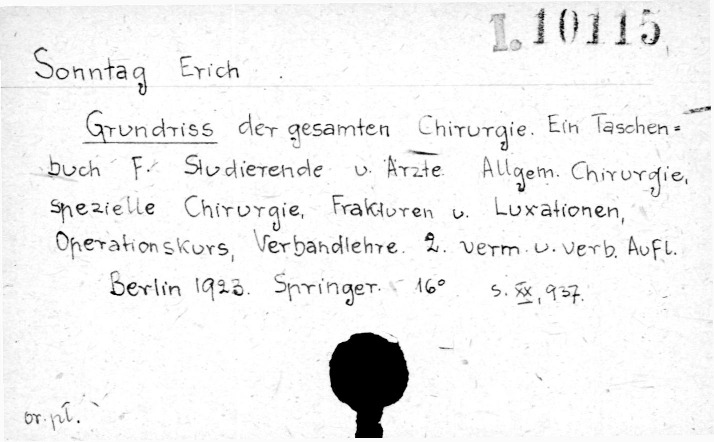 I. 10115
Sonntag Erich.
Grundriss der gesamten Chirurgie. Ein Taschen=
buch F. Studierende u. Ärzte. Allgem. Chirurgie,
spezielle Chirurgie, Frakturen u. Luxationen,
Operationskurs, Verbandlehre. 2. verm. u. verb. Aufl.
Berlin 1923. Springer. 16° s. XX, 937.
or. pł.